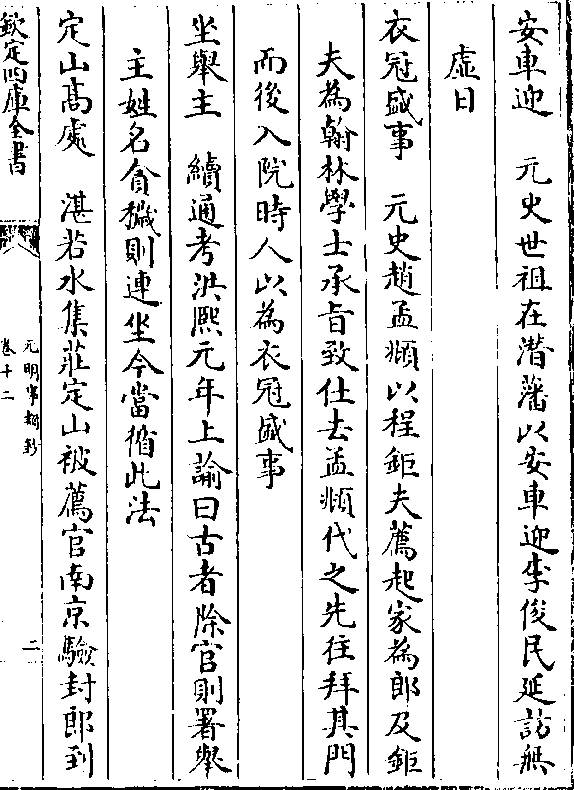 安車迎　元史世祖在潛藩以安車迎李俊民延訪無
虛日
衣冠盛事　元史趙孟頫以程鉅夫薦起家為郎及鉅
夫為翰林學士承旨致仕去孟頫代之先往拜其門
而後入院時人以為衣冠盛事
坐舉主　續通考洪熙元年上諭曰古者除官則署舉
主姓名貪穢則連坐今當循此法
定山高處　湛若水集莊定山被薦官南京驗封郎到
欽定四庫全書
元明事類鈔
卷十二
二